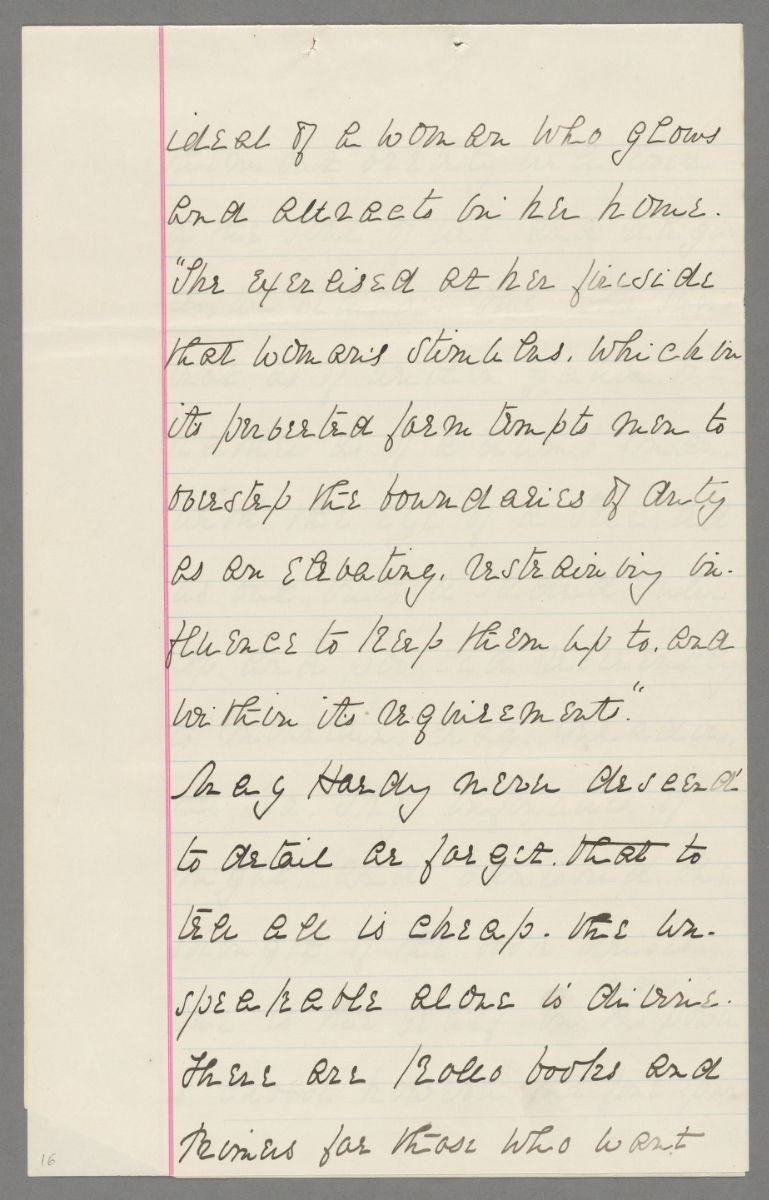 ideal of a woman who glows
and attracts in her home.
"She exercised at her fireside
that woman's stimulus, which in
its perverted form tempts men to
overstep the boundaries of duty
as an elevating, restraining in-
fluence to keep them up to, and
within its requirements."
May Hardy never descend
to detail or forget that to
tell all is cheap. the un-
speakable alone is divine.
There are Rollo books and
Primers for those who want
16